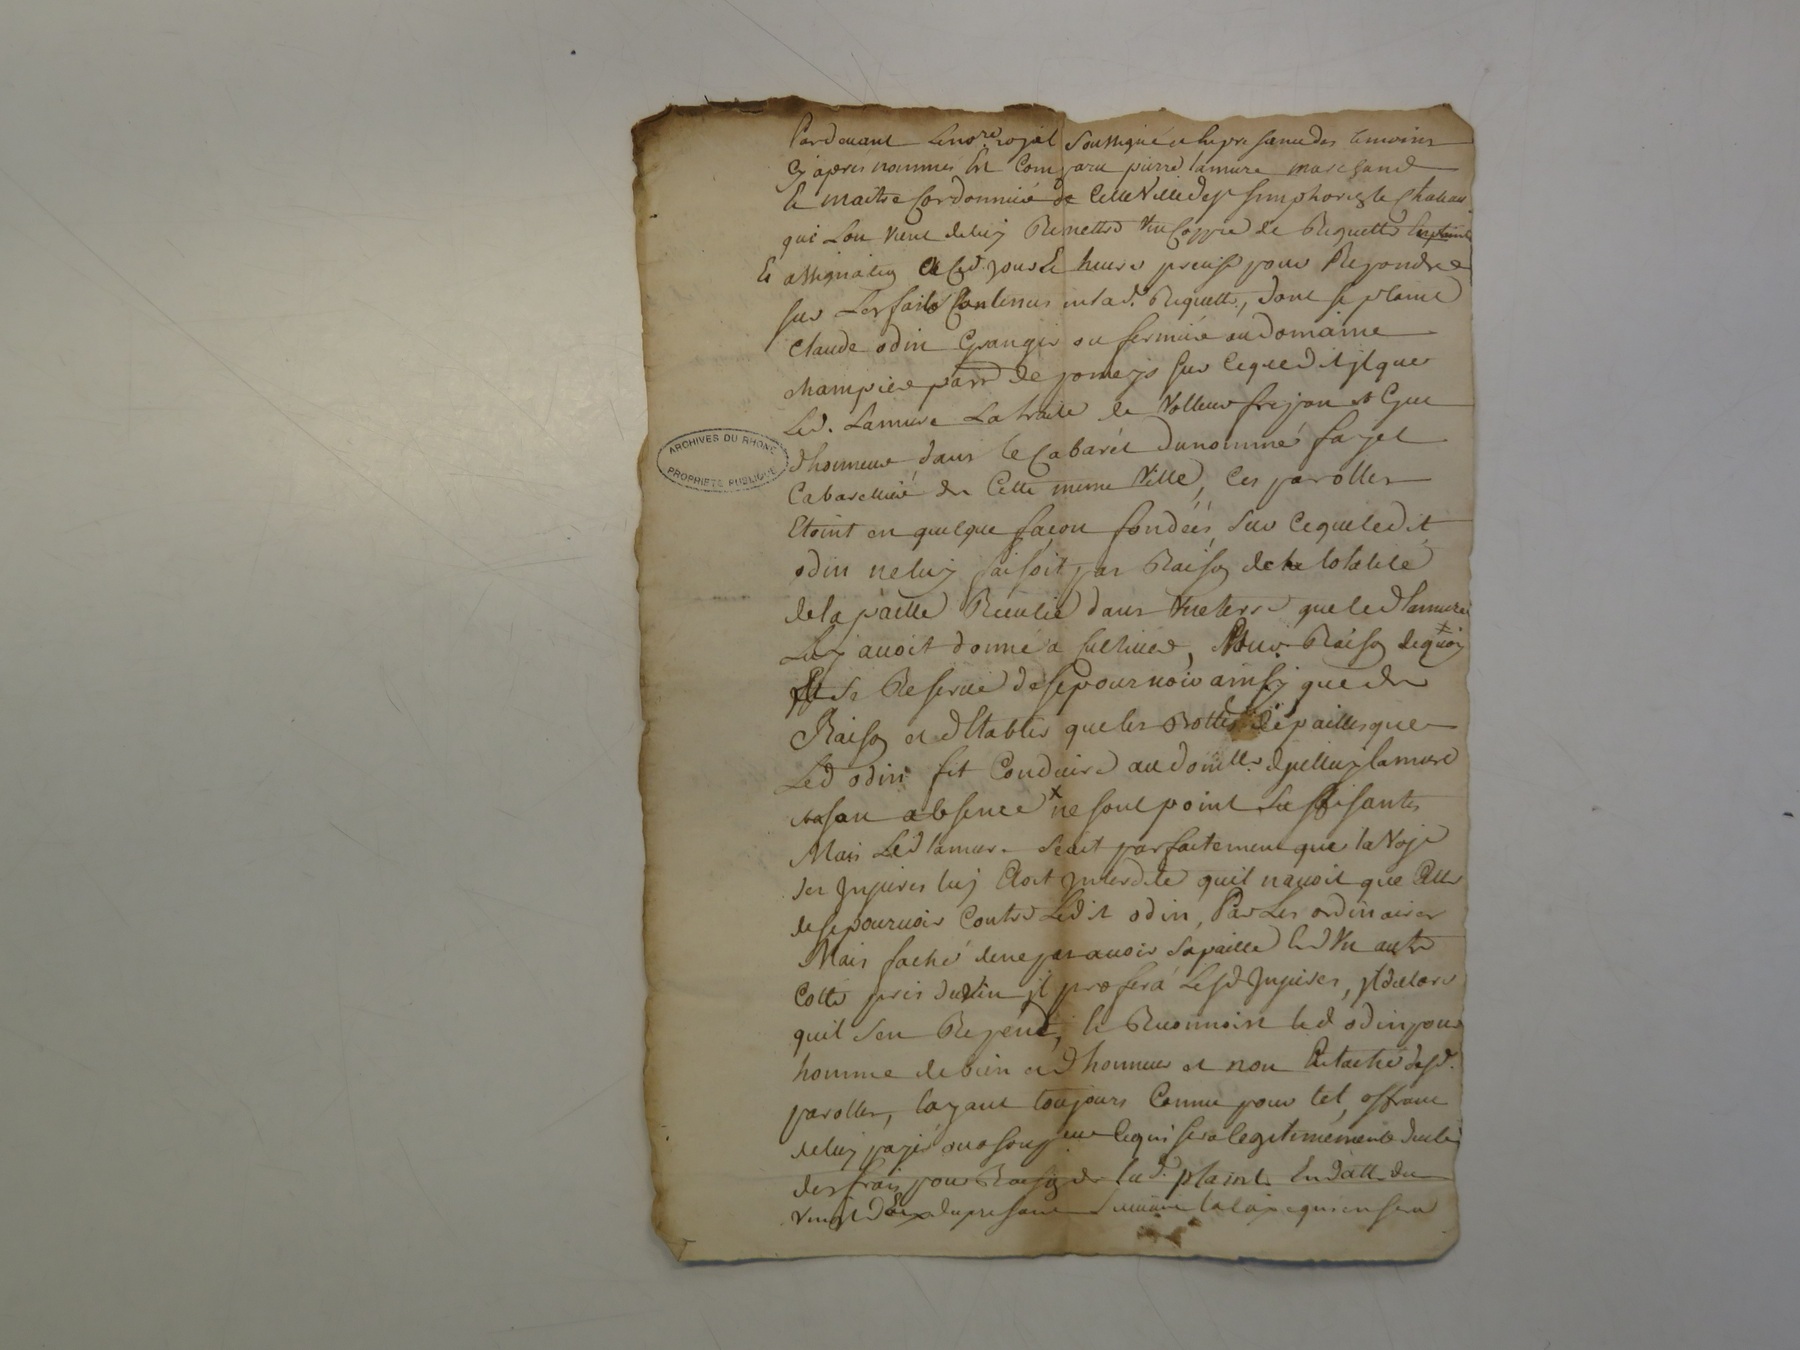 Pardevant Le no.re royal Soussigné et les presance des temoins
Cy apres nommés Est Comparu pierre lamure marchand
Et maitre Cordonnier de Cette Ville de st Simphorien le Chateau
qui Lon vient de luy Remettre Une Coppie de Requette
Et assignation a Ced. jour Et heure pour Repondre
sur Les faits Contenus en lad. Requette, dont se plaint
Claude odin Granger ou fermier au domaine
champier parr de pomeys sur ce que dit jl que
Led. Lamure La traité de Volleur fripon et Gueu
dhonneur dans le Cabarêt du nommé fayet
Cabarettier de Cette meme Ville, Ces parolles
Etoint en quelque façon fondées, Sur ce que ledit
odin ne luy faisoit pas Raison de la totalité
de la paille Reculie dans Une terre que led lamure
Luy avoit donné a cultiver, Pour Raison de quoy
jl Se Reserve de se pourvoir ainsy que de
Raison et dEtablir que les Bottes de pailles que
Led odin fit Conduire au domlle. dicelluy lamure
en son absence ne sont point Suffisantes
Mais Led lamure Scait parfaitement que la Voye
des Injures luy Etoit Interdite quil navoit que Celle
de se pourvoir Contre Ledit odin, Par Les ordinaires
Mais faché de ne pas avoir Sa paille Et dUn autre
Cotté pris du Vin jl profera Lesd Injures, jl declare
quil Sen Repend, et Reconnoist led odin pour
homme de bien et dhonneur et non Entaché desd.
parolles, layant toujours Connu pour tel, offrant
de luy payer ce qui sera legitimement du
des frais pour Raison de lad. plainte En datte du
vingt deux du presant Suivant la taxe qui en sera
ARCHIVES DU RHONE
PROPRIETE PUBLIQUE